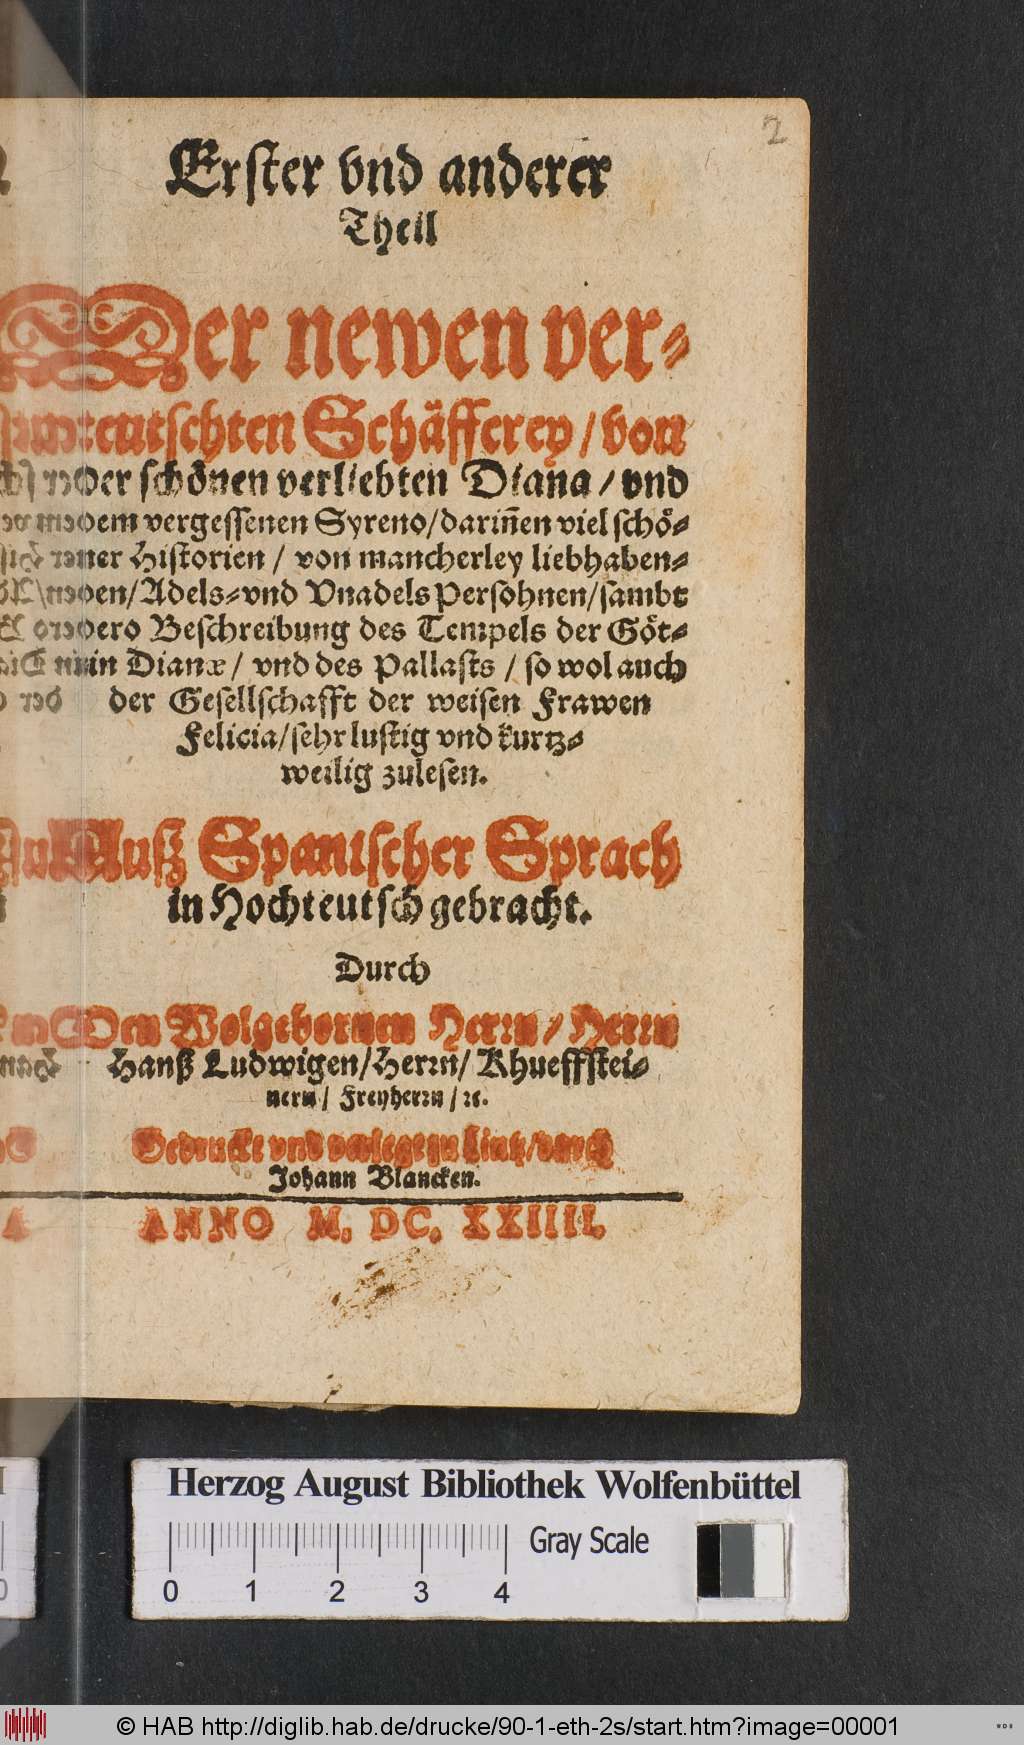 2
Erster vnd anderer
Theil
Der newen ver⸗
teutschten Schäfferey / von
der schönen verliebten Diana / vnd
dem vergessenen Syreno/ dariñen viel schö⸗
ner Historien / von mancherley liebhaben⸗
den/ Adels⸗vnd Vnadels Persohnen/ sambt
dero Beschreibung des Tempels der Göt⸗
tin Dianæ / vnd des Pallasts / so wol auch
der Gesellschafft der weisen Frawen
Felicia/ sehr lustig vnd kurtz⸗
weilig zulesen.
Auß Spanischer Sprach
in Hochteutsch gebracht.
Durch
Den Wolgebornen Herrn / Herrn
Hanß Ludwigen/ Herrn/ Khueffstei⸗
nern / Freyherrn / ꝛc.
Gedruckt vnd verlegt zu Lintz/ durch
Johann Blancken.
ANNO M. DC. XXIIII.
Herzog August Bibliothek Wolfenbüttel
Gray Scale
0 1 2 3 4
© HAB http://diglib.hab.de/drucke/90-1-eth-2s/start.htm?image=00001